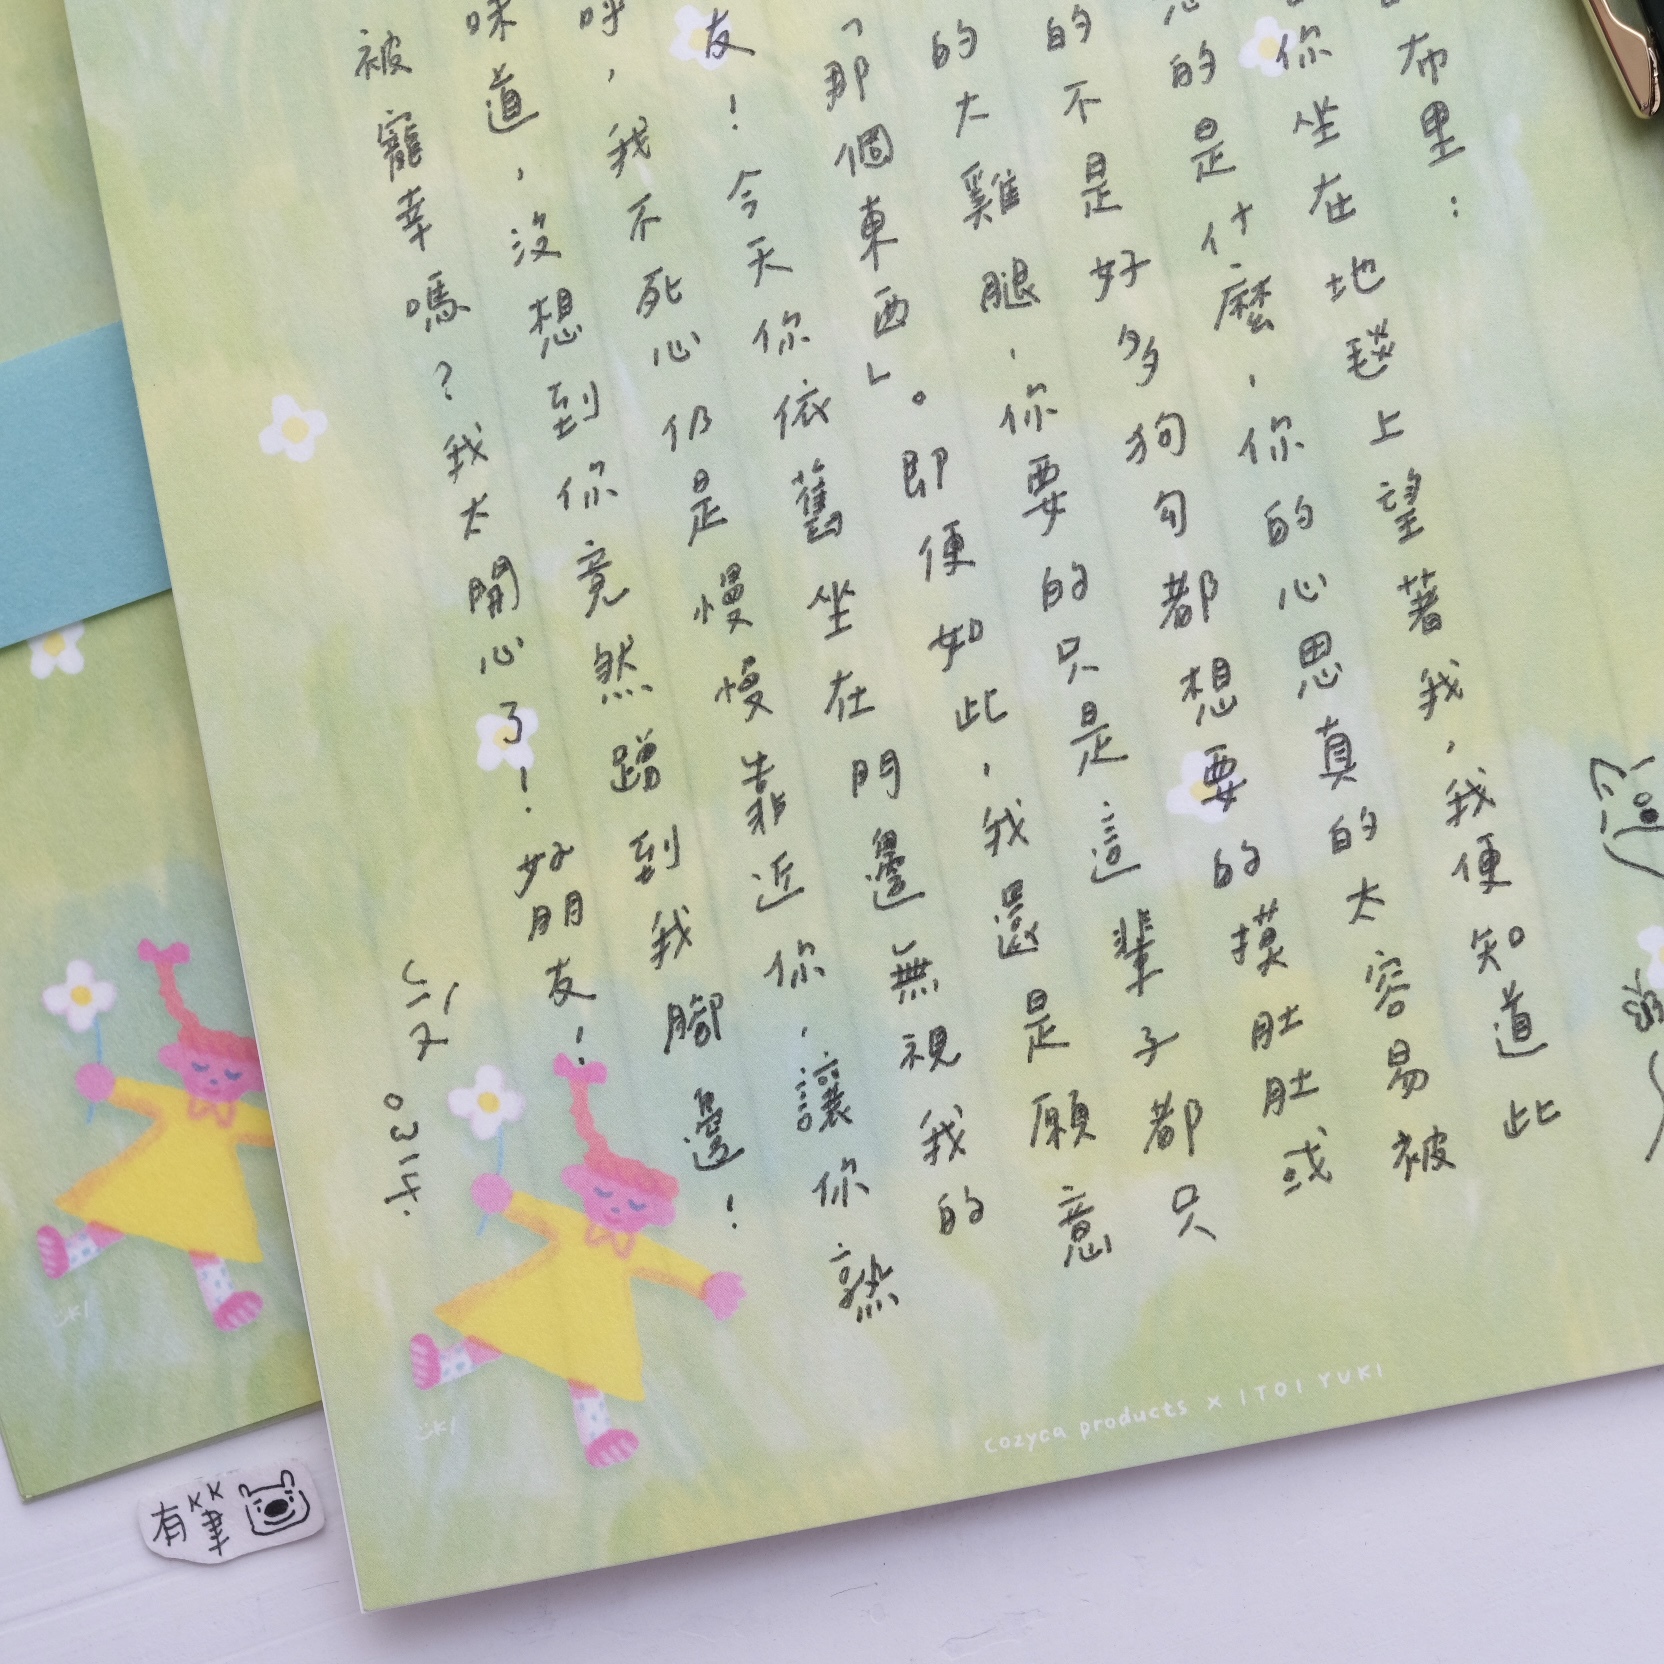 布里：
你坐在地毯上望著我，我便知道此
的是什麼，你的心思真的太容易被
的不是好多狗勾都想要的摸肚肚或
的大雞腿，你要的只是這輩子都只
「那個東西」。即便如此，我還是願意
友！今天你依舊坐在門邊無視我的
呼，我不死心仍是慢慢靠近你，讓你熟
味道，沒想到你竟然蹭到我腳邊！
被寵幸嗎？我太開心了！好朋友！
0314.
cozyca products x ITOI YUKI
有筆